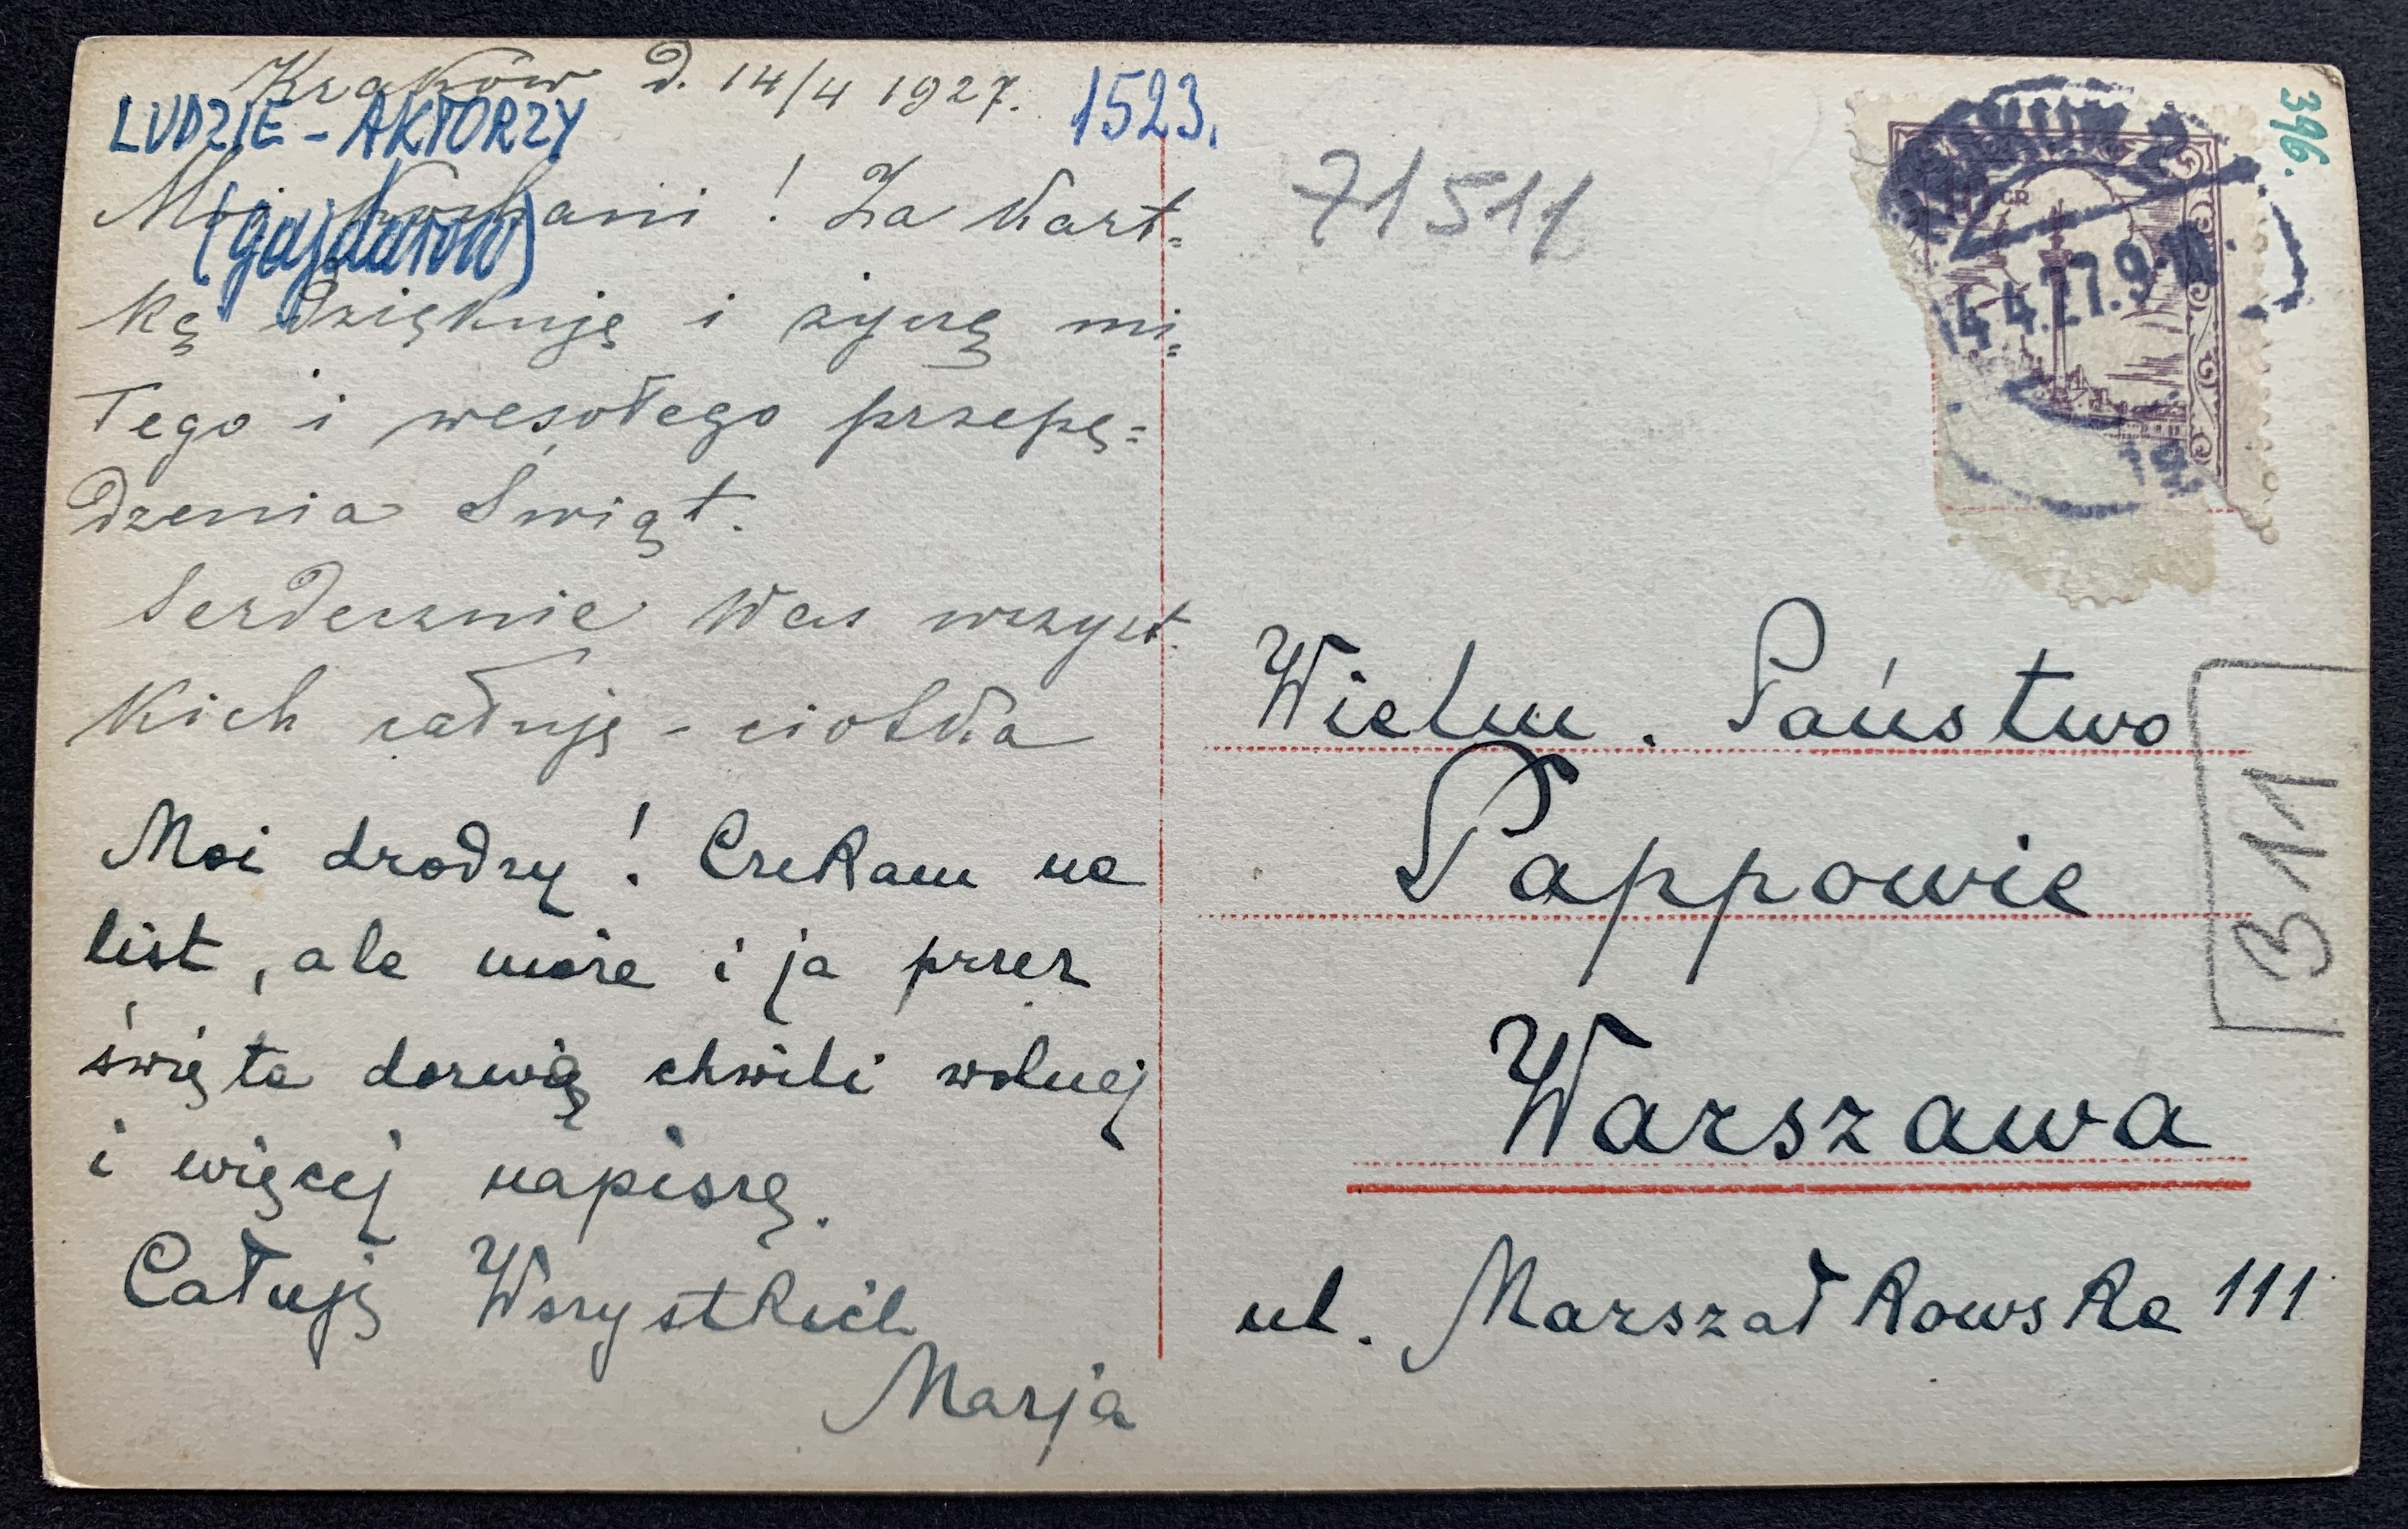 Kraków d. 14/4 1927.
LUDZIE - AKTORZY
1523.
(gajdarow)
Moi kochani ! Za kart=
kę dziękuję i życzę mi=
łego i wesołego przepę=
dzenia Świąt.
Serdecznie Was wszyst=
kich całuję - ciotka
Moi drodzy ! Czekam na
list, ale może i ja przez
święta dorwię chwili wolnej
i więcej napiszę.
Całuję Wszystkich
Marja
71511
396.
GR
14.4.27.9
Wielm. Państwo
Pappowie
Warszawa
ul. Marszałkowska 111
B11